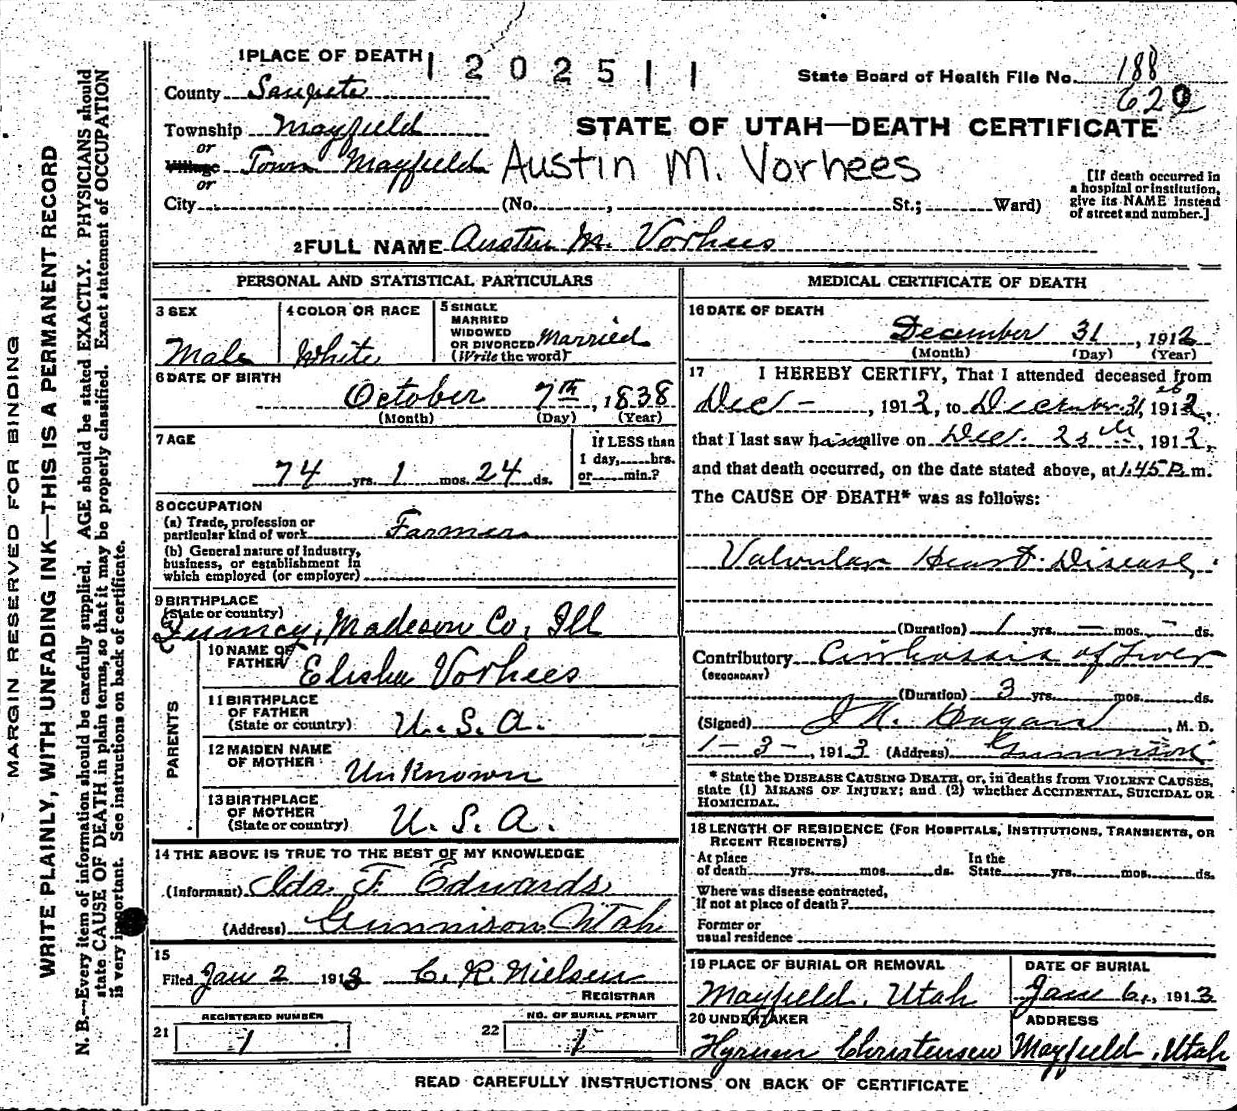 1 PLACE OF DEATH 1 2 0 2 5 1 1
State Board of Health File No. 188
620
County Sanpete
Township Mayfield
or
Village Town Mayfield
or
City (No. , St.; Ward)
STATE OF UTAH—DEATH CERTIFICATE
Austin M. Vorhees
[If death occurred in
a hospital or institution,
give its NAME instead
of street and number.]
2 FULL NAME Austin M. Vorhees
PERSONAL AND STATISTICAL PARTICULARS
3 SEX
Male
4 COLOR OR RACE
White
5 SINGLE
MARRIED
WIDOWED
OR DIVORCED Married
(Write the word)
6 DATE OF BIRTH
October 7th, 1838
(Month) (Day) (Year)
7 AGE
74 yrs. 1 mos. 24 ds.
If LESS than
1 day, hrs.
or min.?
8 OCCUPATION
(a) Trade, profession or
particular kind of work Farmer
(b) General nature of industry,
business, or establishment in
which employed (or employer)
9 BIRTHPLACE
(State or country)
Quincy, Madeson Co, Ill
PARENTS
10 NAME OF
FATHER Elisha Vorhees
11 BIRTHPLACE
OF FATHER
(State or country) U.S.A.
12 MAIDEN NAME
OF MOTHER UnKnown
13 BIRTHPLACE
OF MOTHER
(State or country) U.S.A.
14 THE ABOVE IS TRUE TO THE BEST OF MY KNOWLEDGE
(Informant) Ida F. Edwards
(Address) Gunnison, Utah
15
Filed Jan 2 1913 C. R. Nielsen
REGISTRAR
21 REGISTERED NUMBER
1
22 NO. OF BURIAL PERMIT
1
MEDICAL CERTIFICATE OF DEATH
16 DATE OF DEATH
December 31, 1912
(Month) (Day) (Year)
17 I HEREBY CERTIFY, That I attended deceased from
Dec - , 1912, to December 31, 1912,
that I last saw alive on Dec. 25th, 1912,
and that death occurred, on the date stated above, at 1.45 P. m.
The CAUSE OF DEATH* was as follows:
Valvular Heart Disease
(Duration) 1 yrs. - mos. - ds.
Contributory Cirrhossis of Liver
(SECONDARY)
(Duration) 3 yrs. mos. ds.
(Signed) Hagan, M. D.
1-3-, 1913 (Address) Gunnison
* State the DISEASE CAUSING DEATH, or, in deaths from VIOLENT CAUSES,
state (1) MEANS OF INJURY; and (2) whether ACCIDENTAL, SUICIDAL OR
HOMICIDAL.
18 LENGTH OF RESIDENCE (FOR HOSPITALS, INSTITUTIONS, TRANSIENTS, OR
RECENT RESIDENTS)
At place
of death yrs. mos. ds.
In the
State yrs. mos. ds.
Where was disease contracted,
if not at place of death?
Former or
usual residence
19 PLACE OF BURIAL OR REMOVAL
Mayfield, Utah
DATE OF BURIAL
Jan 6, 1913
20 UNDERTAKER
Hyrum Christensen
ADDRESS
Mayfield, Utah
READ CAREFULLY INSTRUCTIONS ON BACK OF CERTIFICATE
MARGIN RESERVED FOR BINDING
WRITE PLAINLY, WITH UNFADING INK—THIS IS A PERMANENT RECORD
N. B.—Every item of information should be carefully supplied. AGE should be stated EXACTLY. PHYSICIANS should
state CAUSE OF DEATH in plain terms, so that it may be properly classified. Exact statement of OCCUPATION
is very important. See instructions on back of certificate.